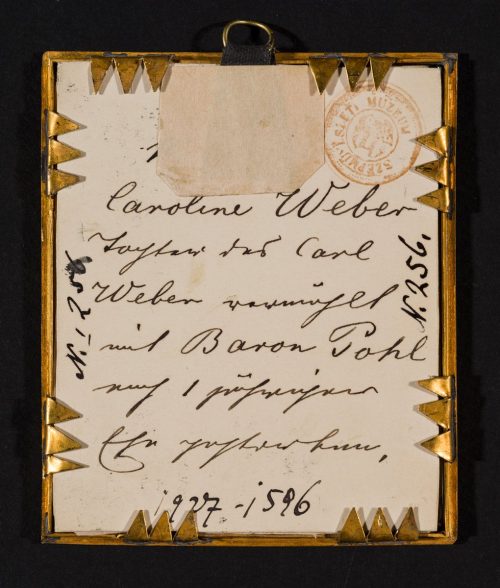 SZÉPMŰVÉSZETI MÚZEUM
Caroline Weber
Tochter des Carl
Weber vermählt
mit Baron Pohl
nach 1 jähriger
Ehe gestorben.
1927-1596
N. 256.